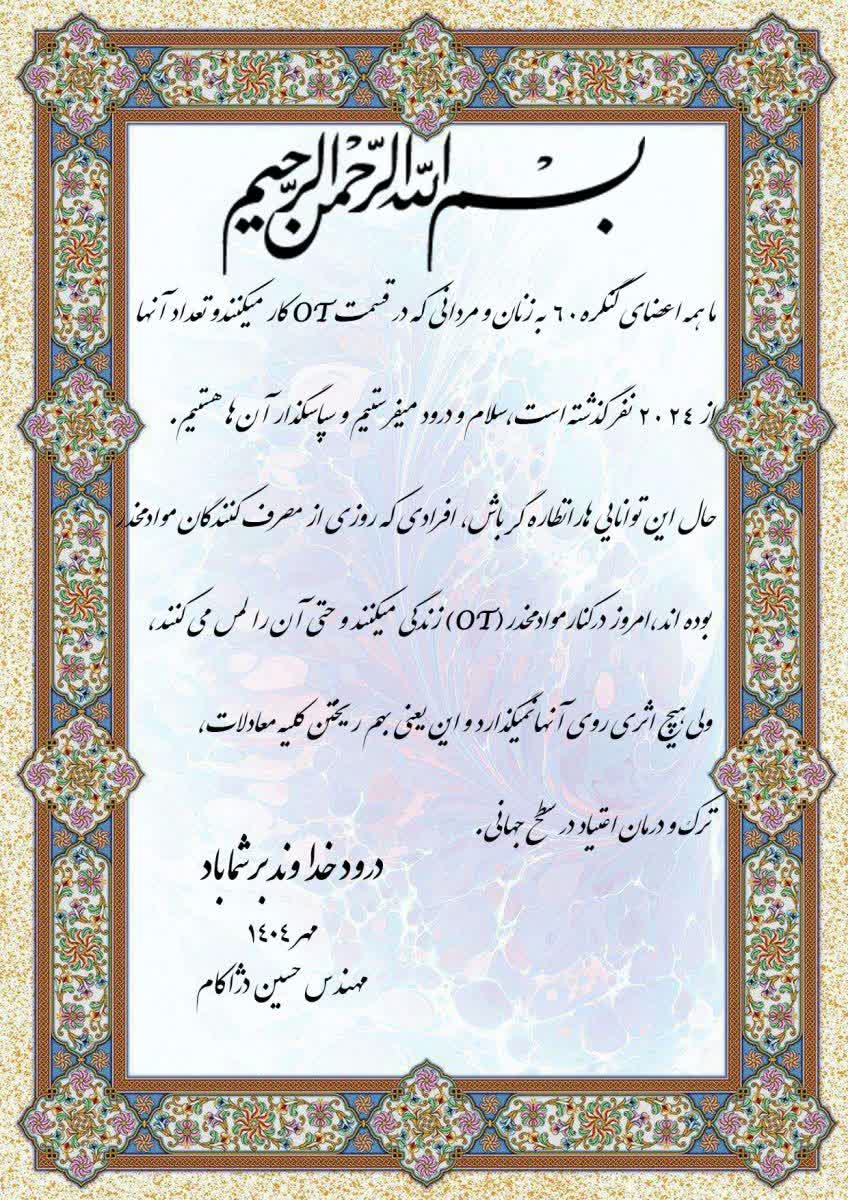 بسم الله الرحمن الرحیم
ما همه اعضای کنگره ۶۰ به زنان و مردانی که در قسمت OT کار میکنندو تعداد آنها
از ۲۰۲۴ نفر گذشته است،سلام و درود میفرستیم و سپاسگذار آن ها هستیم.
حال این توانایی هارانظاره گر باش، افرادی که روزی از مصرف کنندگان موادمخدر
بوده اند،امروز درکنارموادمخدر (OT) زندگی میکنند و حتی آن را لمس می کنند،
ولی هیچ اثری روی آنهانمیگذارد و این یعنی بهم ریختن کلیه معادلات،
ترک و درمان اعتیاد در سطح جهانی.
درود خداوند بر شما باد
مهر ۱۴۰۴
مهندس حسین دژاکام